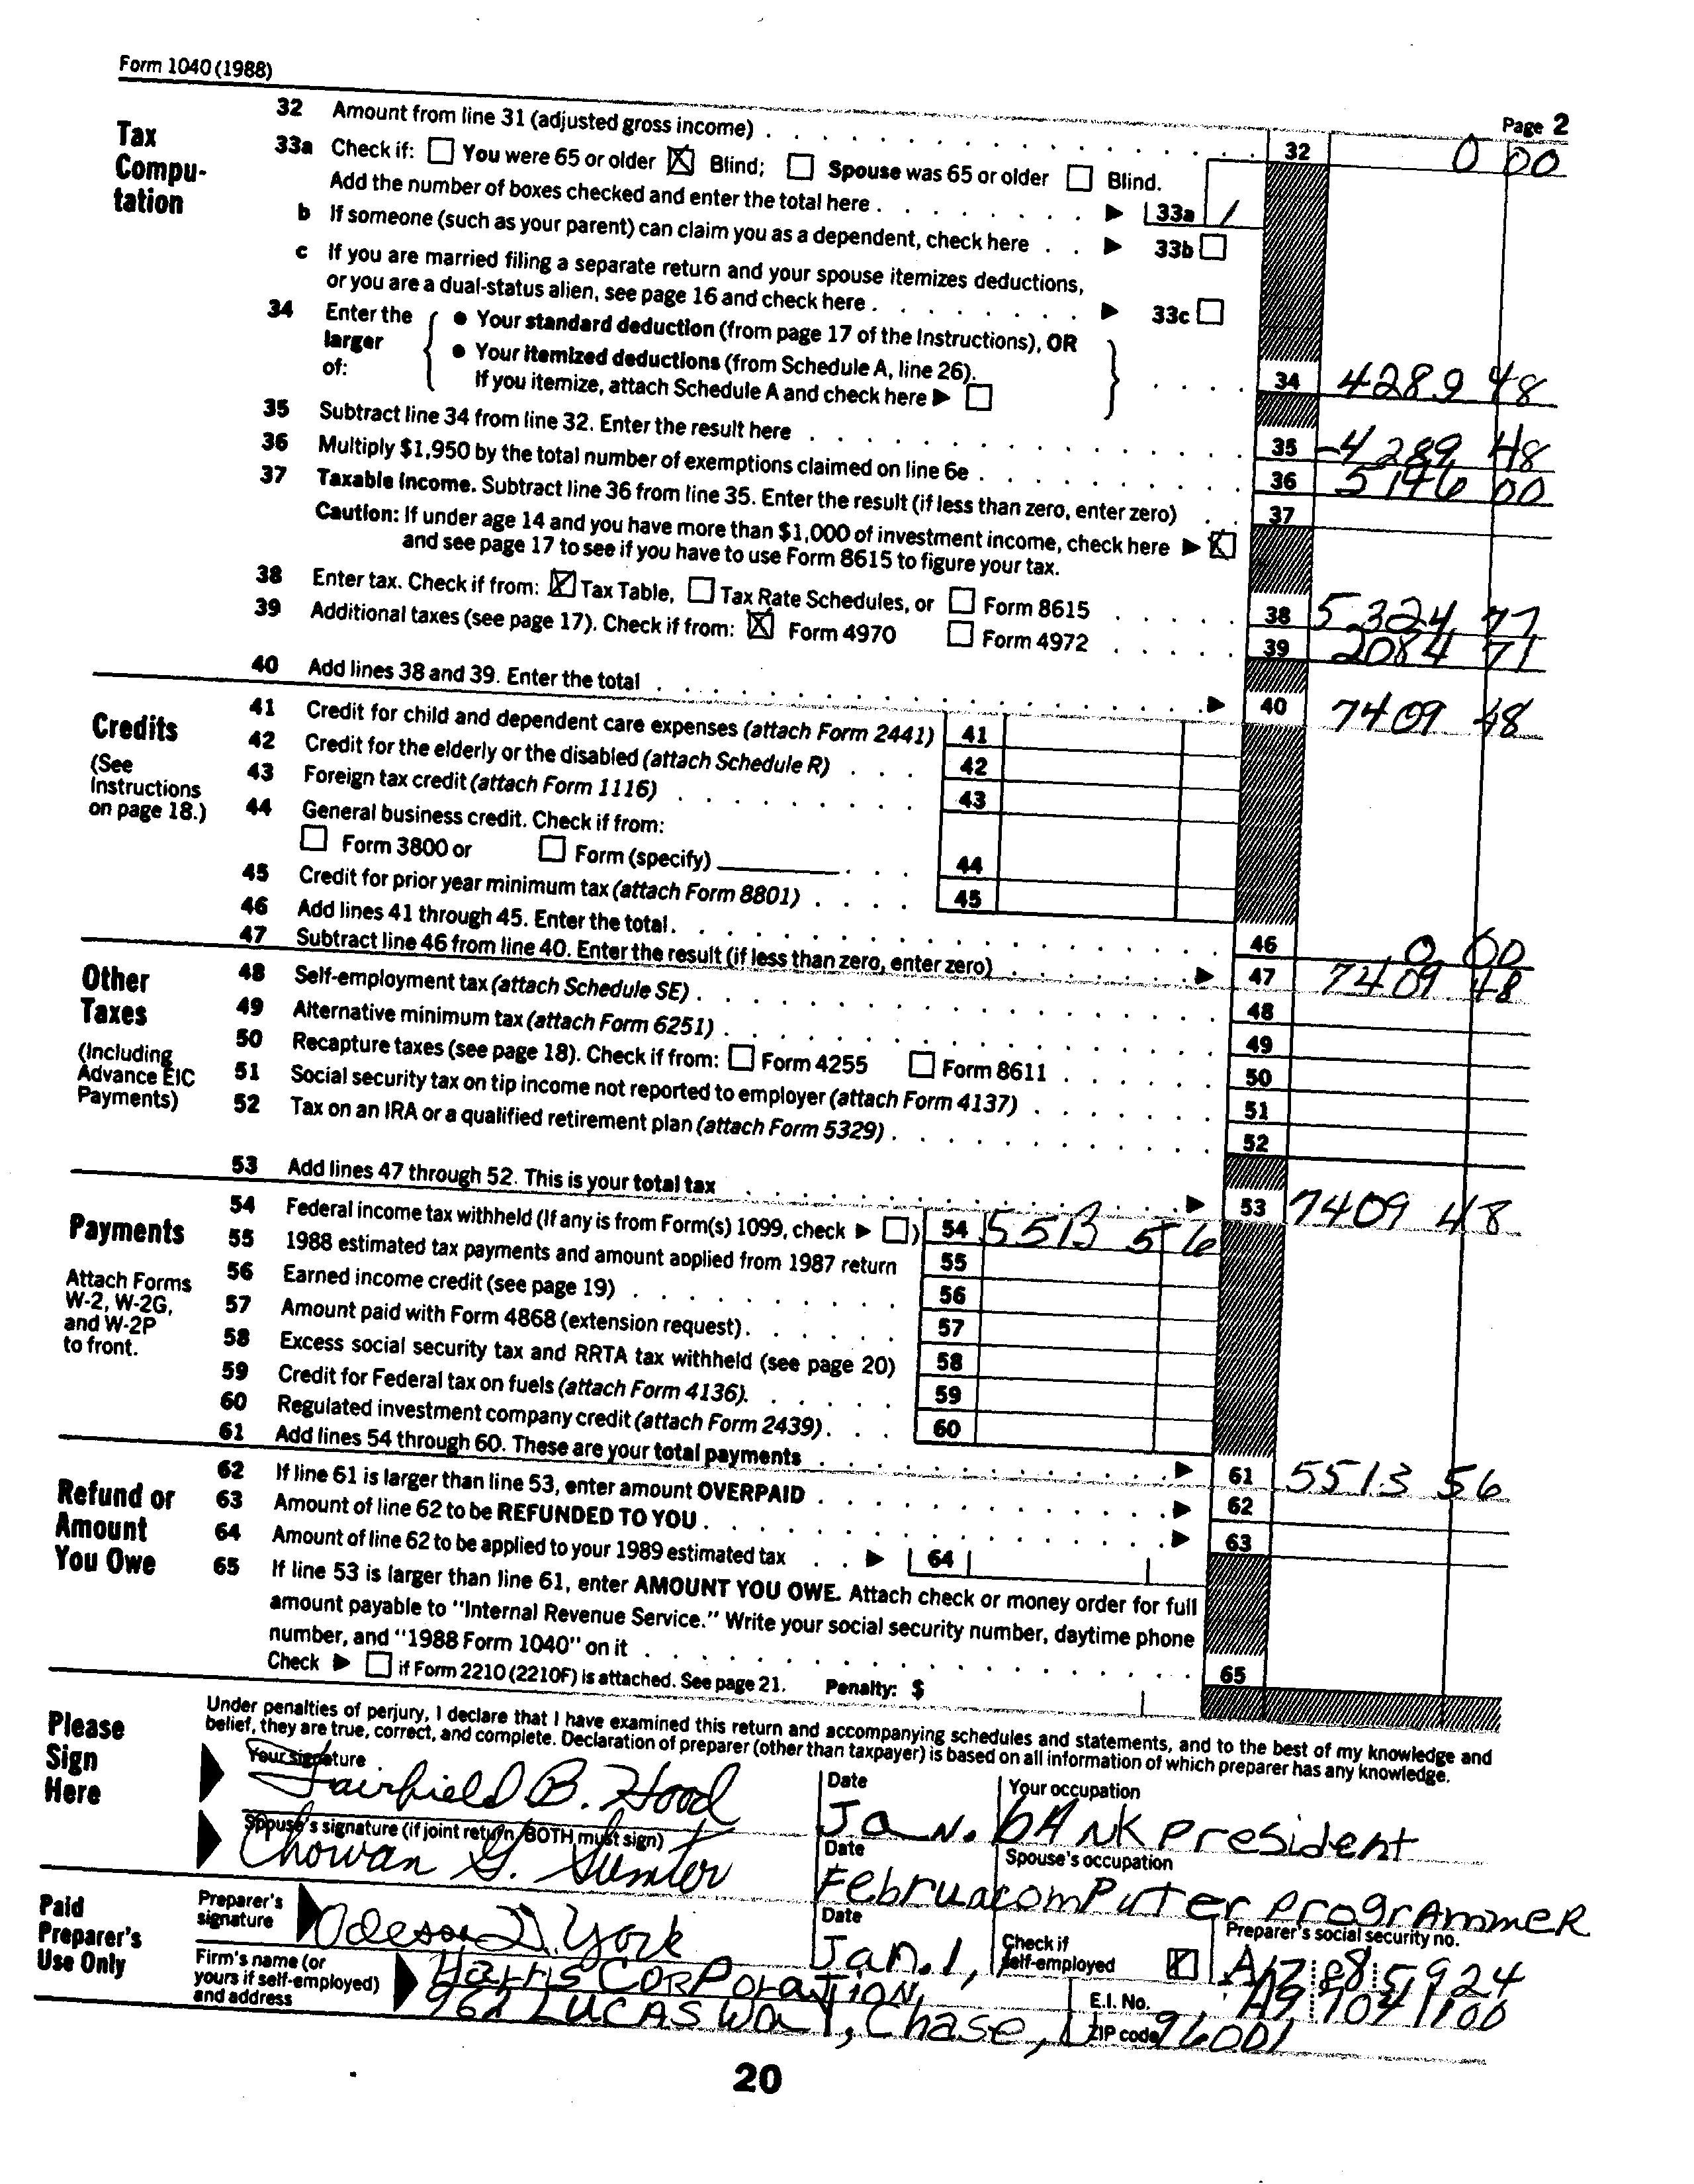 Form 1040 (1988)
Page 2
Tax Compu-tation
32 Amount from line 31 (adjusted gross income) 32 0 00
33a Check if: You were 65 or older X Blind; Spouse was 65 or older Blind.
Add the number of boxes checked and enter the total here 33a 1
b If someone (such as your parent) can claim you as a dependent, check here 33b
c If you are married filing a separate return and your spouse itemizes deductions,
or you are a dual-status alien, see page 16 and check here 33c
34 Enter the larger of:
• Your standard deduction (from page 17 of the Instructions), OR
• Your itemized deductions (from Schedule A, line 26).
If you itemize, attach Schedule A and check here ▶ 34 4289 48
35 Subtract line 34 from line 32. Enter the result here 35 -4289 48
36 Multiply $1,950 by the total number of exemptions claimed on line 6e 36 5146 00
37 Taxable income. Subtract line 36 from line 35. Enter the result (if less than zero, enter zero) 37
Caution: If under age 14 and you have more than $1,000 of investment income, check here ▶ X
and see page 17 to see if you have to use Form 8615 to figure your tax.
38 Enter tax. Check if from: X Tax Table, Tax Rate Schedules, or Form 8615 38 5324 77
39 Additional taxes (see page 17). Check if from: X Form 4970 Form 4972 39 2084 71
40 Add lines 38 and 39. Enter the total ▶ 40 7409 48
Credits
(See Instructions on page 18.)
41 Credit for child and dependent care expenses (attach Form 2441) 41
42 Credit for the elderly or the disabled (attach Schedule R) 42
43 Foreign tax credit (attach Form 1116) 43
44 General business credit. Check if from:
Form 3800 or Form (specify) 44
45 Credit for prior year minimum tax (attach Form 8801) 45
46 Add lines 41 through 45. Enter the total 46 0 00
47 Subtract line 46 from line 40. Enter the result (if less than zero, enter zero) ▶ 47 7409 48
Other Taxes
(Including Advance EIC Payments)
48 Self-employment tax (attach Schedule SE) 48
49 Alternative minimum tax (attach Form 6251) 49
50 Recapture taxes (see page 18). Check if from: Form 4255 Form 8611 50
51 Social security tax on tip income not reported to employer (attach Form 4137) 51
52 Tax on an IRA or a qualified retirement plan (attach Form 5329) 52
53 Add lines 47 through 52. This is your total tax ▶ 53 7409 48
Payments
Attach Forms W-2, W-2G, and W-2P to front.
54 Federal income tax withheld (If any is from Form(s) 1099, check ▶ ) 54 5513 56
55 1988 estimated tax payments and amount applied from 1987 return 55
56 Earned income credit (see page 19) 56
57 Amount paid with Form 4868 (extension request) 57
58 Excess social security tax and RRTA tax withheld (see page 20) 58
59 Credit for Federal tax on fuels (attach Form 4136) 59
60 Regulated investment company credit (attach Form 2439) 60
61 Add lines 54 through 60. These are your total payments ▶ 61 5513 56
Refund or Amount You Owe
62 If line 61 is larger than line 53, enter amount OVERPAID ▶ 62
63 Amount of line 62 to be REFUNDED TO YOU ▶ 63
64 Amount of line 62 to be applied to your 1989 estimated tax ▶ 64
65 If line 53 is larger than line 61, enter AMOUNT YOU OWE. Attach check or money order for full
amount payable to "Internal Revenue Service." Write your social security number, daytime phone
number, and "1988 Form 1040" on it 65
Check ▶ if Form 2210 (2210F) is attached. See page 21. Penalty: $
Please Sign Here
Under penalties of perjury, I declare that I have examined this return and accompanying schedules and statements, and to the best of my knowledge and
belief, they are true, correct, and complete. Declaration of preparer (other than taxpayer) is based on all information of which preparer has any knowledge.
Your signature Date Your occupation
Fairfield B. Hood Jan. bank president
Spouse's signature (if joint return, BOTH must sign) Date Spouse's occupation
Chowan G. Sumter Februa computer programmer
Paid Preparer's Use Only
Preparer's signature Odessa D. York Date Jan. 1, Check if self-employed X Preparer's social security no.
Firm's name (or yours if self-employed) and address
Harris Corporation, E.I. No.
962 Lucas Way, Chase, ZIP code 96001
20